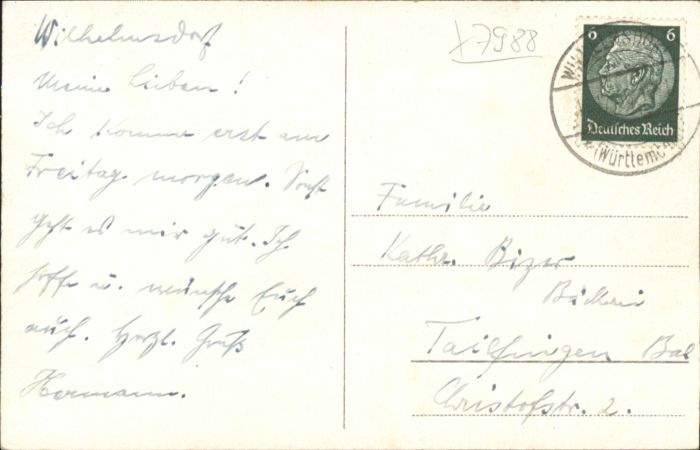 Wilhelmsdorf
Meine Lieben!
Ich komme erst am
Freitag morgen. Sonst
geht es mir gut. Ich
hoffe u. wünsche Euch
auch. Herzl. Gruß
Hermann.
7988
6 6
Deutsches Reich
(Württemb
Familie
Kath. Bizer
Bäckerei
Tailfingen Bal
Christofstr. 2.